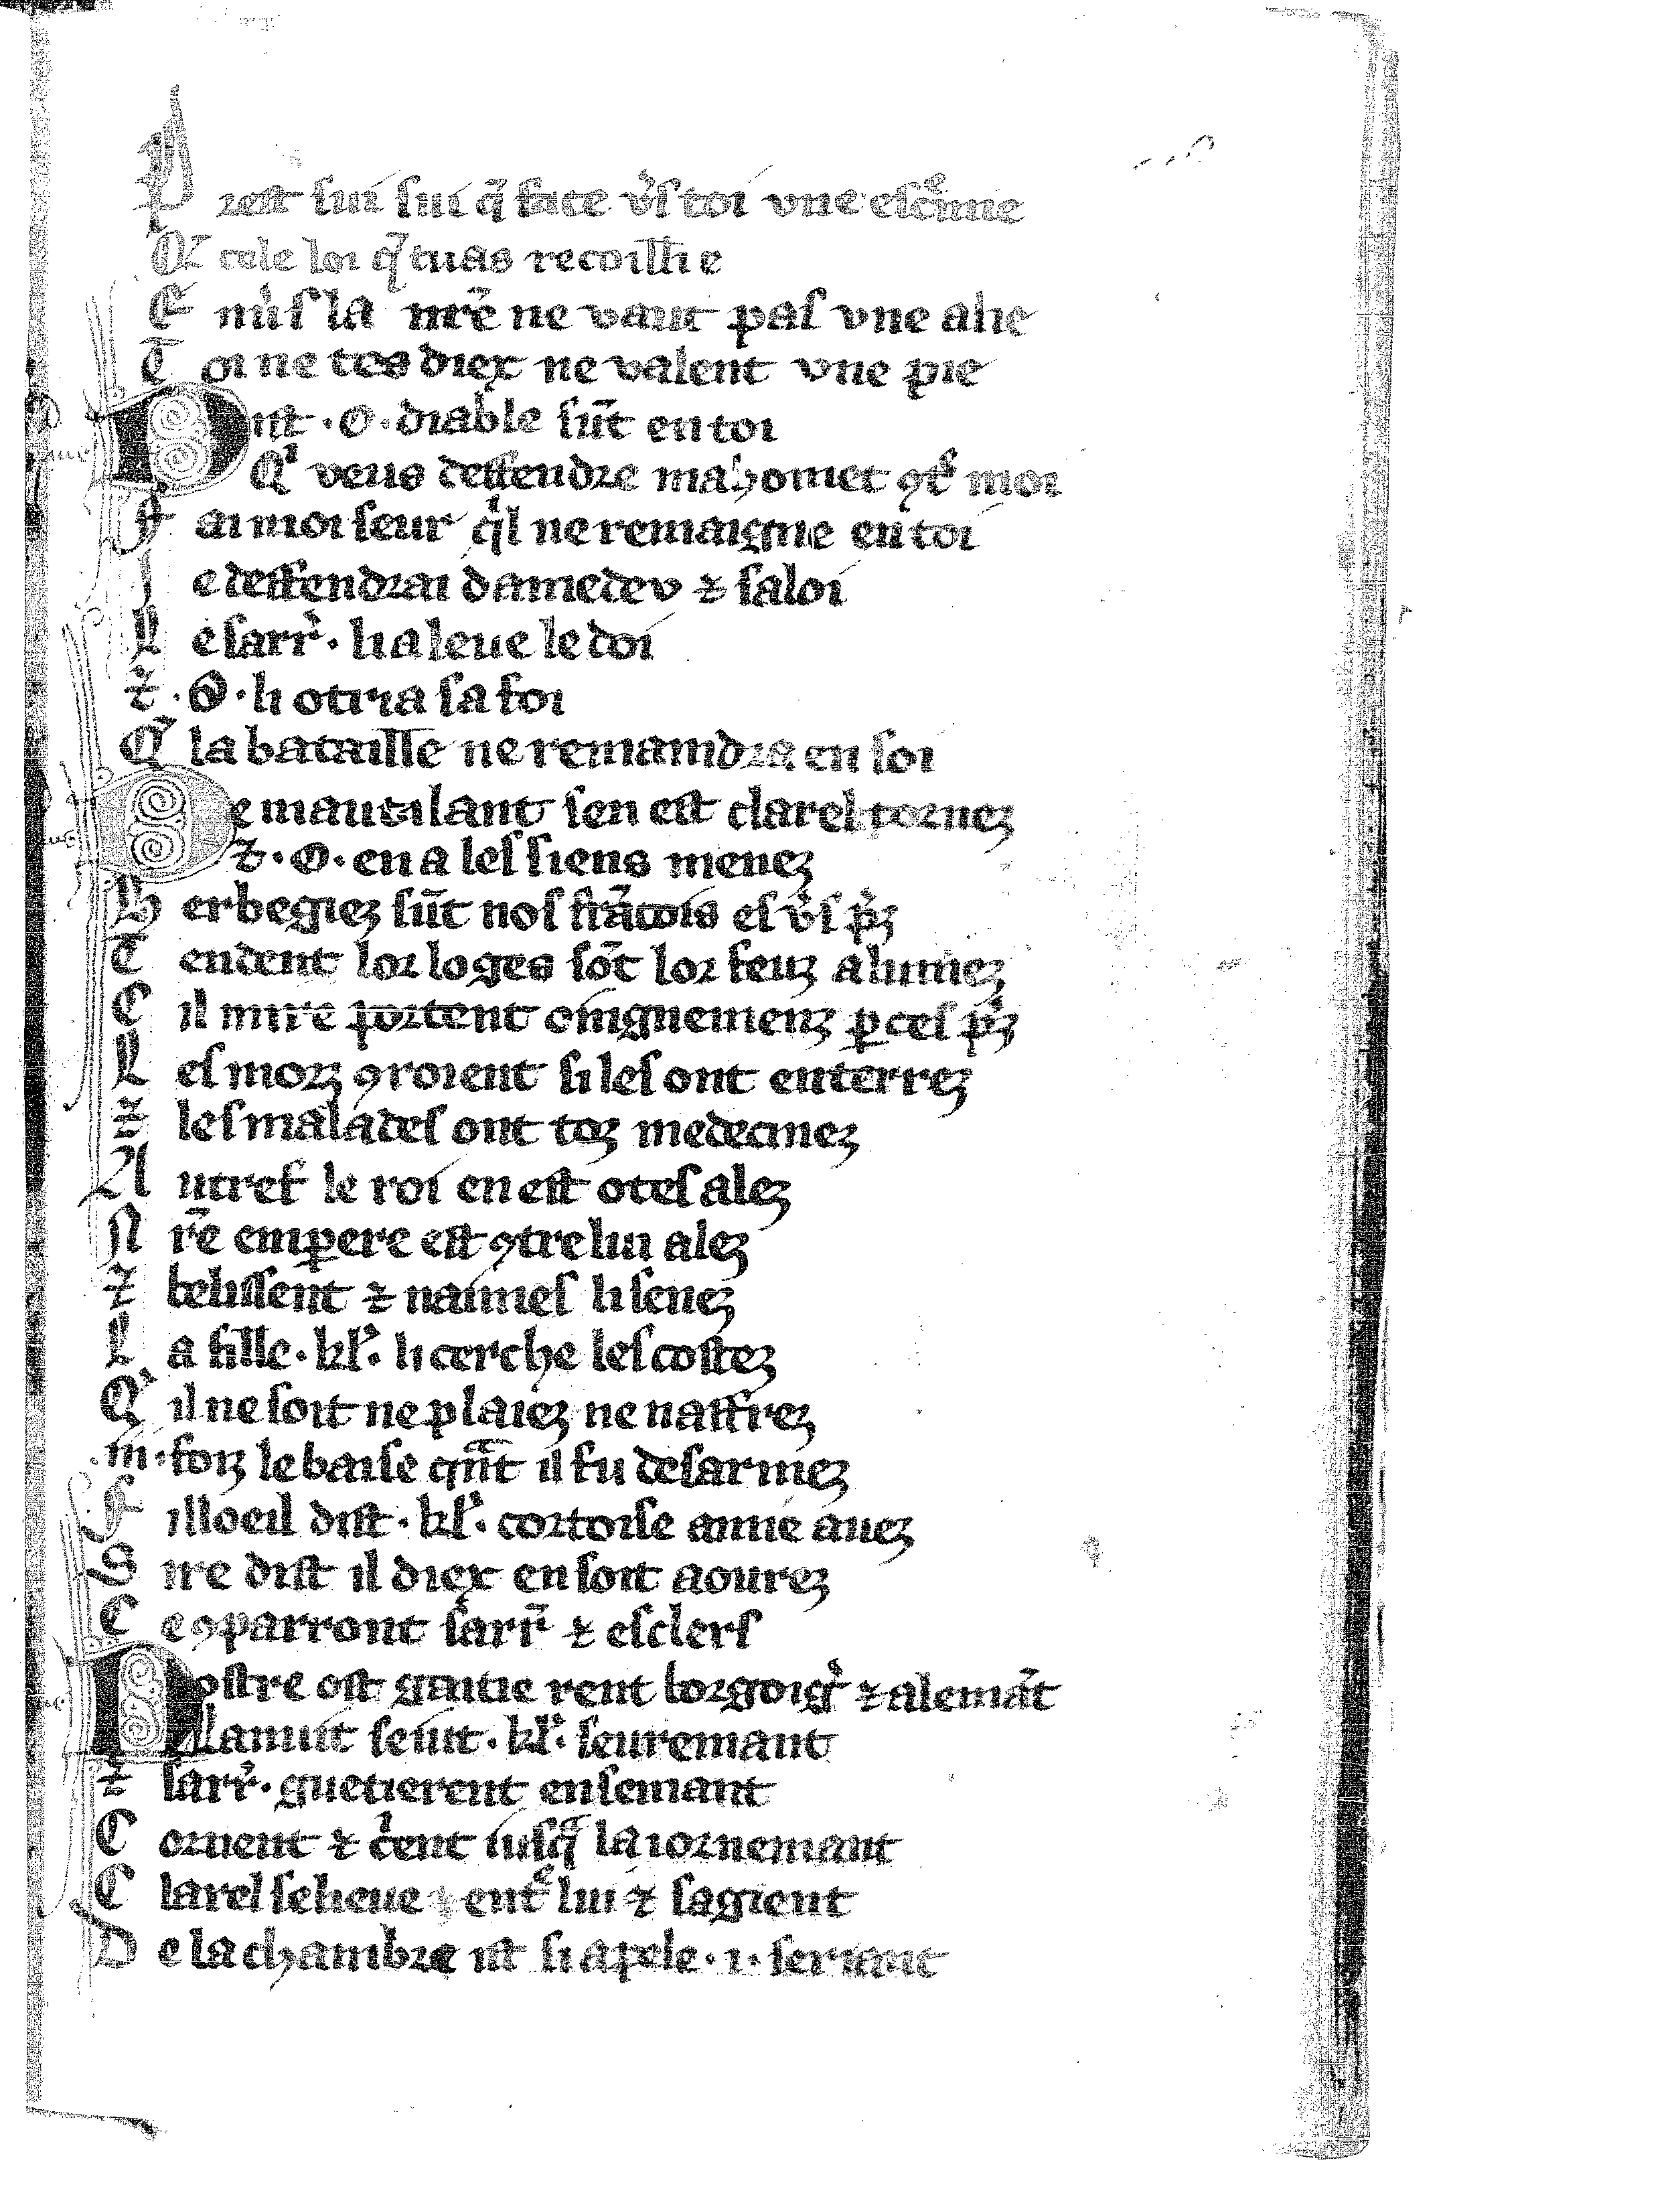 P rest sui sui q̃ face v̾s toi vne esc̾mie
Q̃ cele loi q̃ tu as recoillie
E nu̾s la nr̃e ne vaut pas vne alie
T oi ne tes diex ne valent vne pie
D ist · O · diable sũt en toi
Qͥ veus deffendre mahomet ꝯt̾ moi
F ai moi seur qͥl ne remaigne en toi
J e deffendrai damedev ⁊ sa loi
L e sarr̾ · li a leue le doi
⁊ · O · li otria sa foi
Q̃ la bataille ne remaindra en soi
D e mautilant sen est clarel tornez
⁊ · O · en a les siens menez
H erbegiez sũt nos frãcois es v̾s p̾z
T endent lor loges sõt lor feuz alumez
C il mire portent oingnemenz ꝑ ces p̾z
L es morz ꝯroient si les ont enterrez
⁊ les malades ont toz medecinez
A u tref le roi en est otes alez
N r̃e empere est ꝯtre lui alez
⁊ belissent ⁊ naimes li senez
L a fille · kl̾ · li cerche les costez
Qͥ il ne soit ne plaiez ne naffrez
· m̃ · foiz le baise qñt il fu desarmez
F illoeil dist · kl̾ · cortoise amie auez
S ire dist il diex en soit aourez
C e ꝯparront sarr̃ ⁊ esclers
N ostre ost gaitierent borgoig̾ ⁊ alemãt
La nuit seiut · kl̾ · seuremant
⁊ sarr̾ · guetierent ensemant
C ornent ⁊ cͥent iusq̃ la iornemant
C larel se lieue ent̾ lui ⁊ sa gient
D e la chambre ist si apele · i · seriant